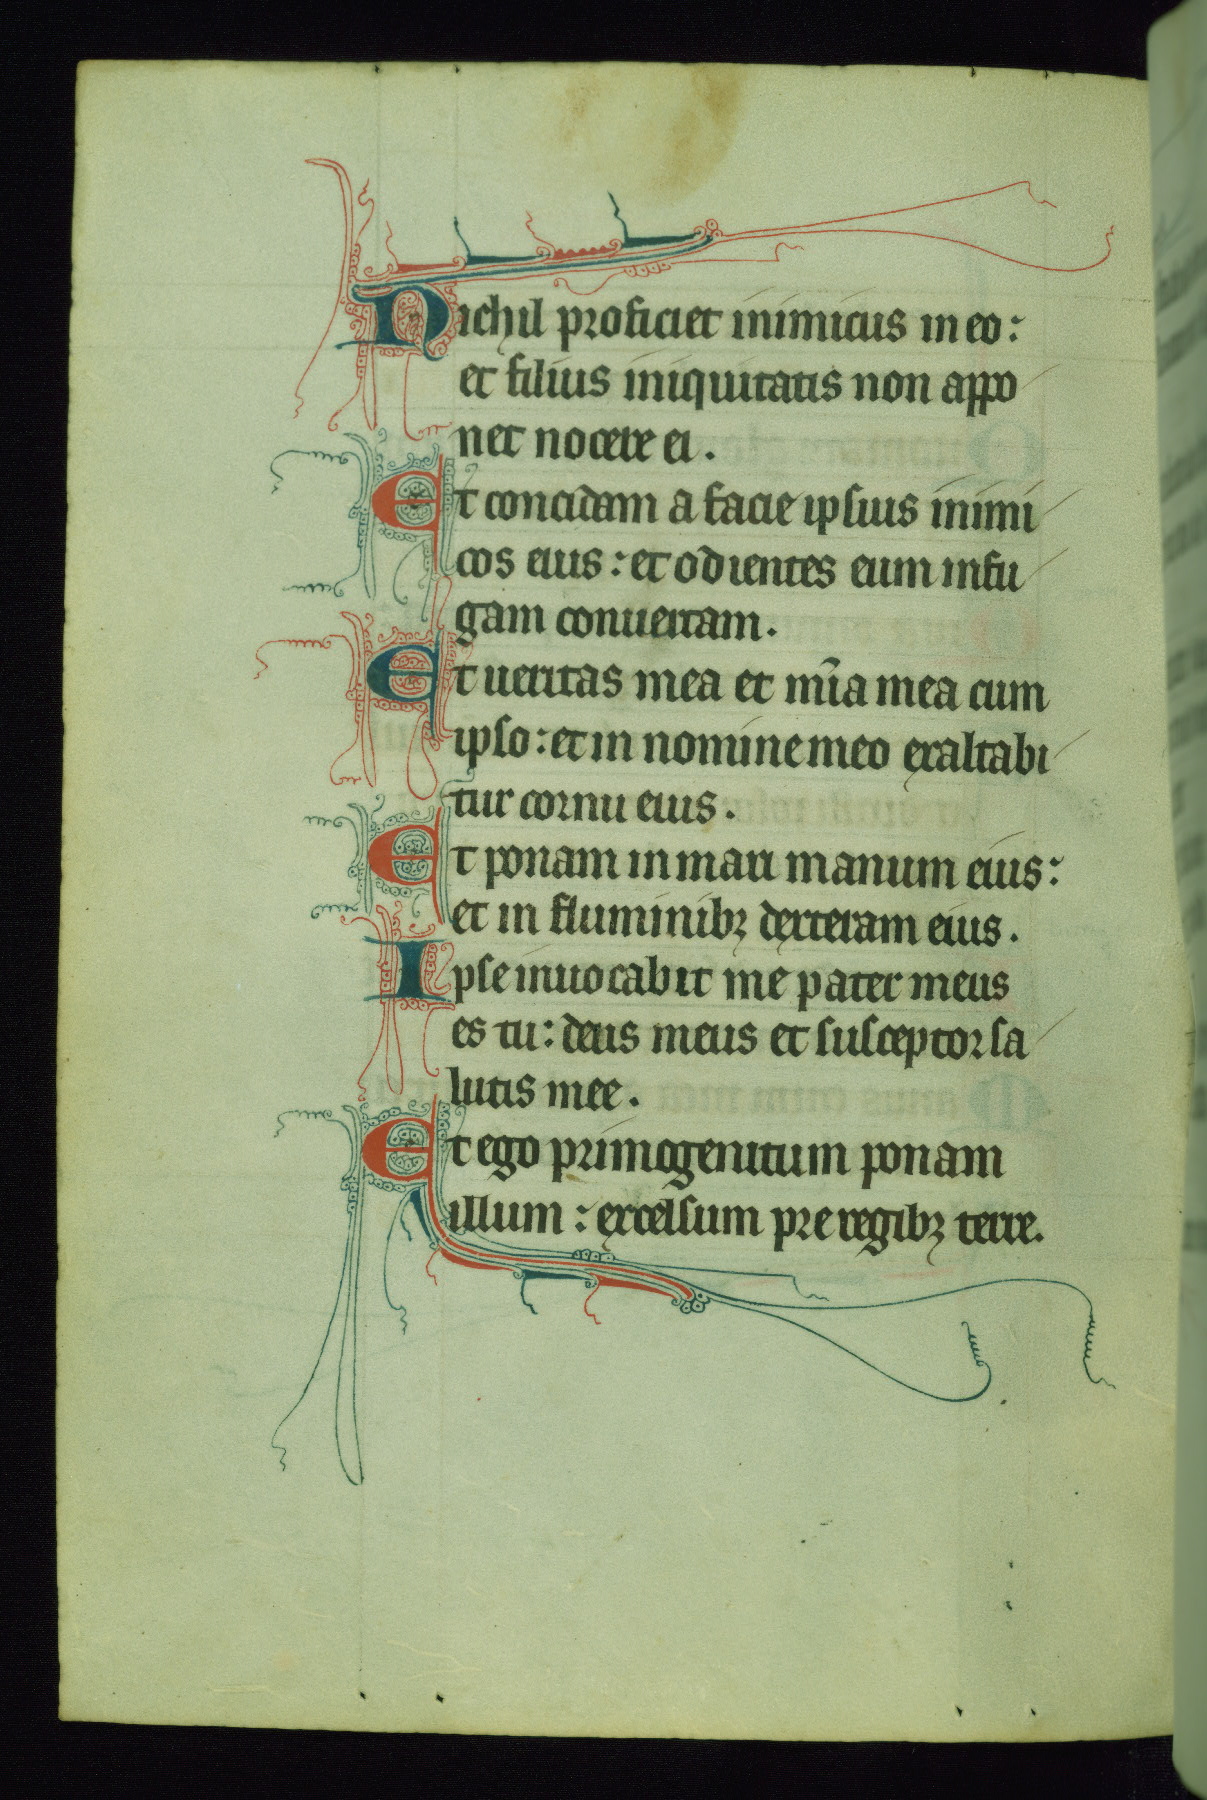 Nichil proficiet inimicus in eo:
et filius iniquitatis non appo
net nocere ei.
Et concidam a facie ipsius inimi
cos eius: et odientes eum in fu
gam conuertam.
Et ueritas mea et mīa mea cum
ipso: et in nomine meo exaltabi
tur cornu eius.
Et ponam in mari manum eius:
et in fluminibꝫ dexteram eius.
Ipse inuocabit me pater meus
es tu: deus meus et susceptor sa
lutis mee.
Et ego primogenitum ponam
illum: excelsum pre regibꝫ terre.